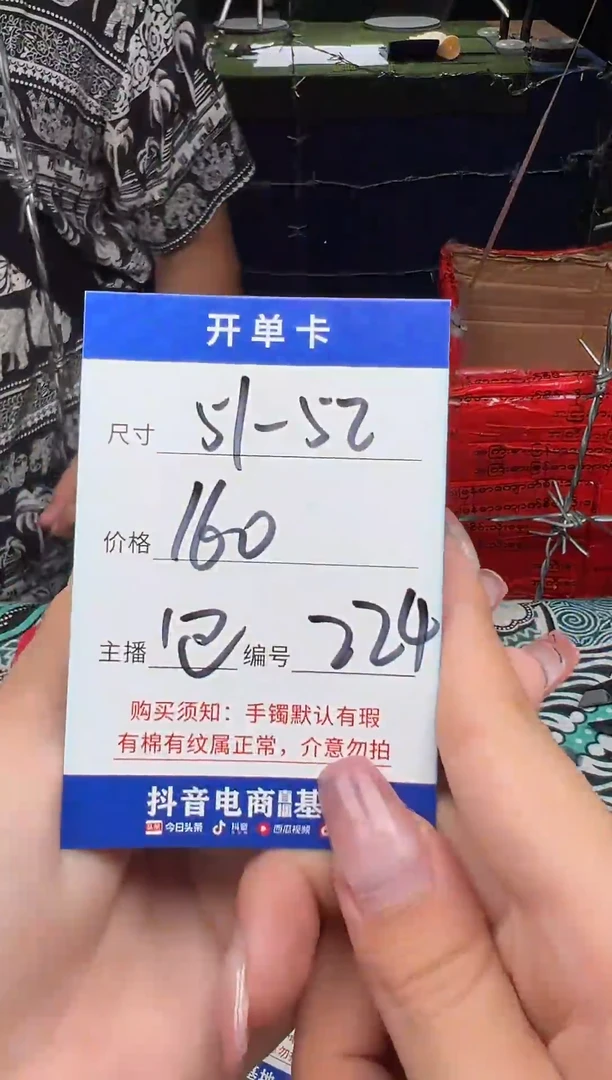 开单卡
尺寸 51-52
价格 160
主播 编号 224
购买须知：手镯默认有瑕
有棉有纹属正常，介意勿拍
抖音电商直播基
头条 今日头条 抖音 西瓜视频